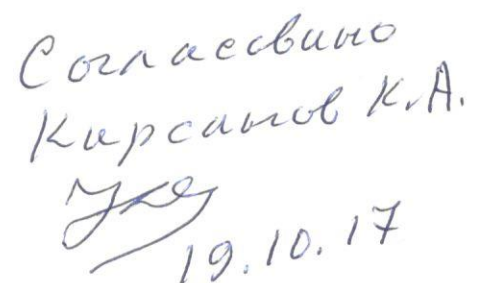 Согласовано
Кирсанов К.А.
19.10.17